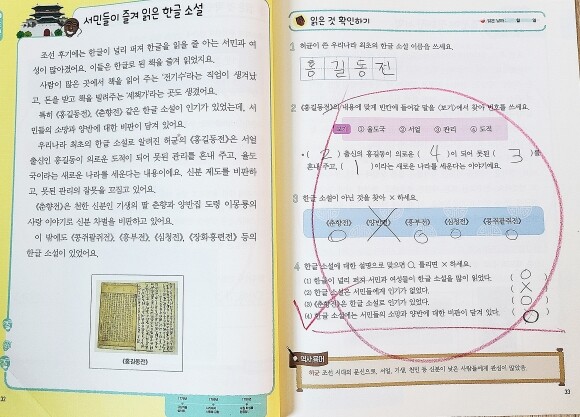 서민들이 즐겨 읽은 한글 소설
조선 후기에는 한글이 널리 퍼져 한글을 읽을 줄 아는 서민과 여
성이 많아졌어요. 이들은 한글로 된 책을 즐겨 읽었지요.
사람이 많은 곳에서 책을 읽어 주는 '전기수'라는 직업이 생겨났
고, 돈을 받고 책을 빌려주는 '세책가'라는 곳도 생겼어요.
특히 《홍길동전》, 《춘향전》 같은 한글 소설이 인기가 있었는데, 서
민들의 소망과 양반에 대한 비판이 담겨 있어요.
우리나라 최초의 한글 소설로 알려진 허균의 《홍길동전》은 서얼
출신인 홍길동이 의로운 도적이 되어 못된 관리를 혼내 주고, 율도
국이라는 새로운 나라를 세운다는 내용이에요. 신분 제도를 비판하
고, 못된 관리의 잘못을 꼬집고 있어요.
《춘향전》은 천한 신분인 기생의 딸 춘향과 양반집 도령 이몽룡의
사랑 이야기로 신분 차별을 비판하고 있어요.
이 밖에도 《콩쥐팥쥐전》, 《흥부전》, 《심청전》, 《장화홍련전》 등의
한글 소설이 있었어요.
《홍길동전》
32
읽은 것 확인하기
읽은 날짜 월 일
1 허균이 쓴 우리나라 최초의 한글 소설 이름을 쓰세요.
홍 길 동 전
2 《홍길동전》의 내용에 맞게 빈칸에 들어갈 말을 〈보기〉에서 찾아 번호를 쓰세요.
보기 ① 율도국 ② 서얼 ③ 관리 ④ 도적
• ( 2 ) 출신의 홍길동이 의로운 ( 4 )이 되어 못된 ( 3 )를
혼내 주고, ( 1 )이라는 새로운 나라를 세운다는 이야기예요.
3 한글 소설이 아닌 것을 찾아 × 하세요.
《춘향전》 《흥부전》 《심청전》 《콩쥐팥쥐전》
4 한글 소설에 대한 설명으로 맞으면 ○, 틀리면 × 하세요.
(1) 한글이 널리 퍼져 서민과 여성들이 한글 소설을 많이 읽었다. ( ○ )
(2) 한글 소설은 서민들에게 인기가 없었다. ( × )
(3) 《춘향전》은 한글 소설로 인기가 있었다. ( ○ )
(4) 한글 소설에는 서민들의 소망과 양반에 대한 비판이 담겨 있다. ( ○ )
역사 용어
허균 조선 시대의 문신으로, 서얼, 기생, 천민 등 신분이 낮은 사람들에게 관심이 많았음.
33